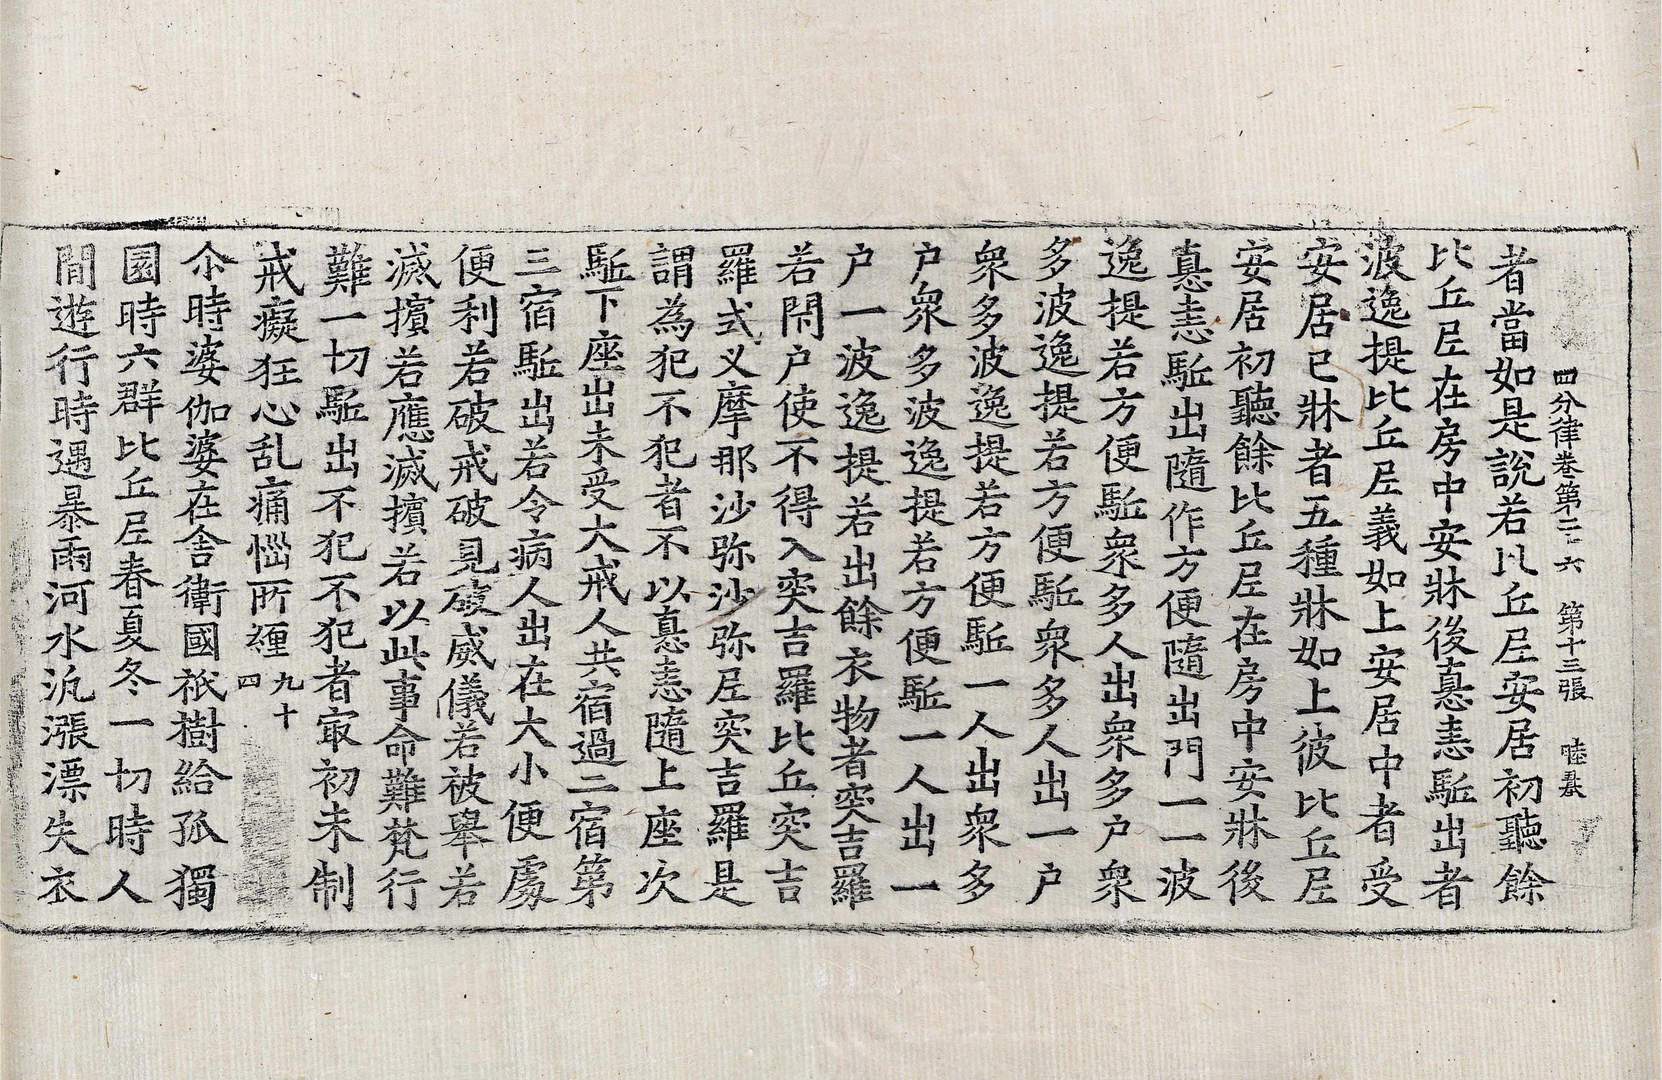 四分律卷第二六 第十三張 睦
者當如是說若比丘尼安居初聽餘
比丘尼在房中安牀後恚駈出者
波逸提比丘尼義如上安居中者受
安居已牀者五種牀如上彼比丘尼
安居初聽餘比丘尼在房中安牀後
恚駈出隨作方便隨出門一一波
逸提若方便駈衆多人出衆多户衆
多波逸提若方便駈衆多人出一户
衆多波逸提若方便駈一人出衆多
户衆多波逸提若方便駈一人出一
户一波逸提若出餘衣物者突吉羅
若閇户使不得入突吉羅比丘突吉
羅式叉摩那沙弥沙弥尼突吉羅是
謂為犯不犯者不以恚隨上座次
駈下座出未受大戒人共宿過二宿第
三宿駈出若令病人出在大小便處
便利若破戒破見破威儀若被舉若
滅擯若應滅擯若以此事命難梵行
難一切駈出不犯不犯者㝡初未制
戒癡狂心乱痛惱所纏 九十四
尒時婆伽婆在舎衛國祇樹給孤獨
園時六群比丘尼春夏冬一切時人
間遊行時遇暴雨河水汎漲漂失衣